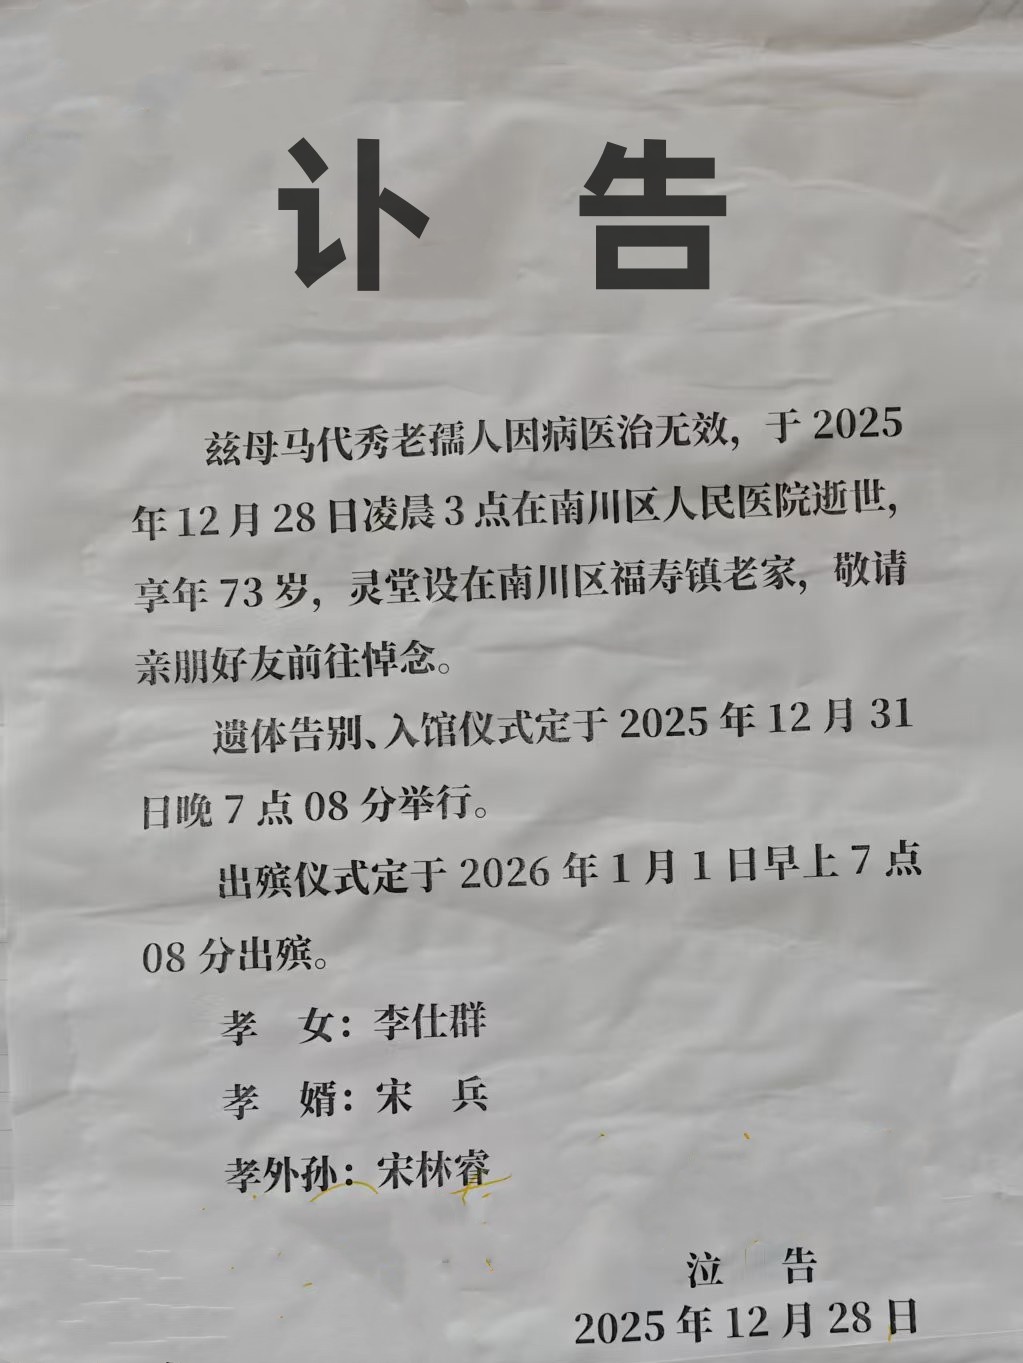 讣 告
兹母马代秀老孺人因病医治无效，于 2025
年 12 月 28 日凌晨 3 点在南川区人民医院逝世，
享年 73 岁，灵堂设在南川区福寿镇老家，敬请
亲朋好友前往悼念。
遗体告别、入馆仪式定于 2025 年 12 月 31
日晚 7 点 08 分举行。
出殡仪式定于 2026 年 1 月 1 日早上 7 点
08 分出殡。
孝 女：李仕群
孝 婿：宋 兵
孝外孙：宋林睿
泣 告
2025 年 12 月 28 日